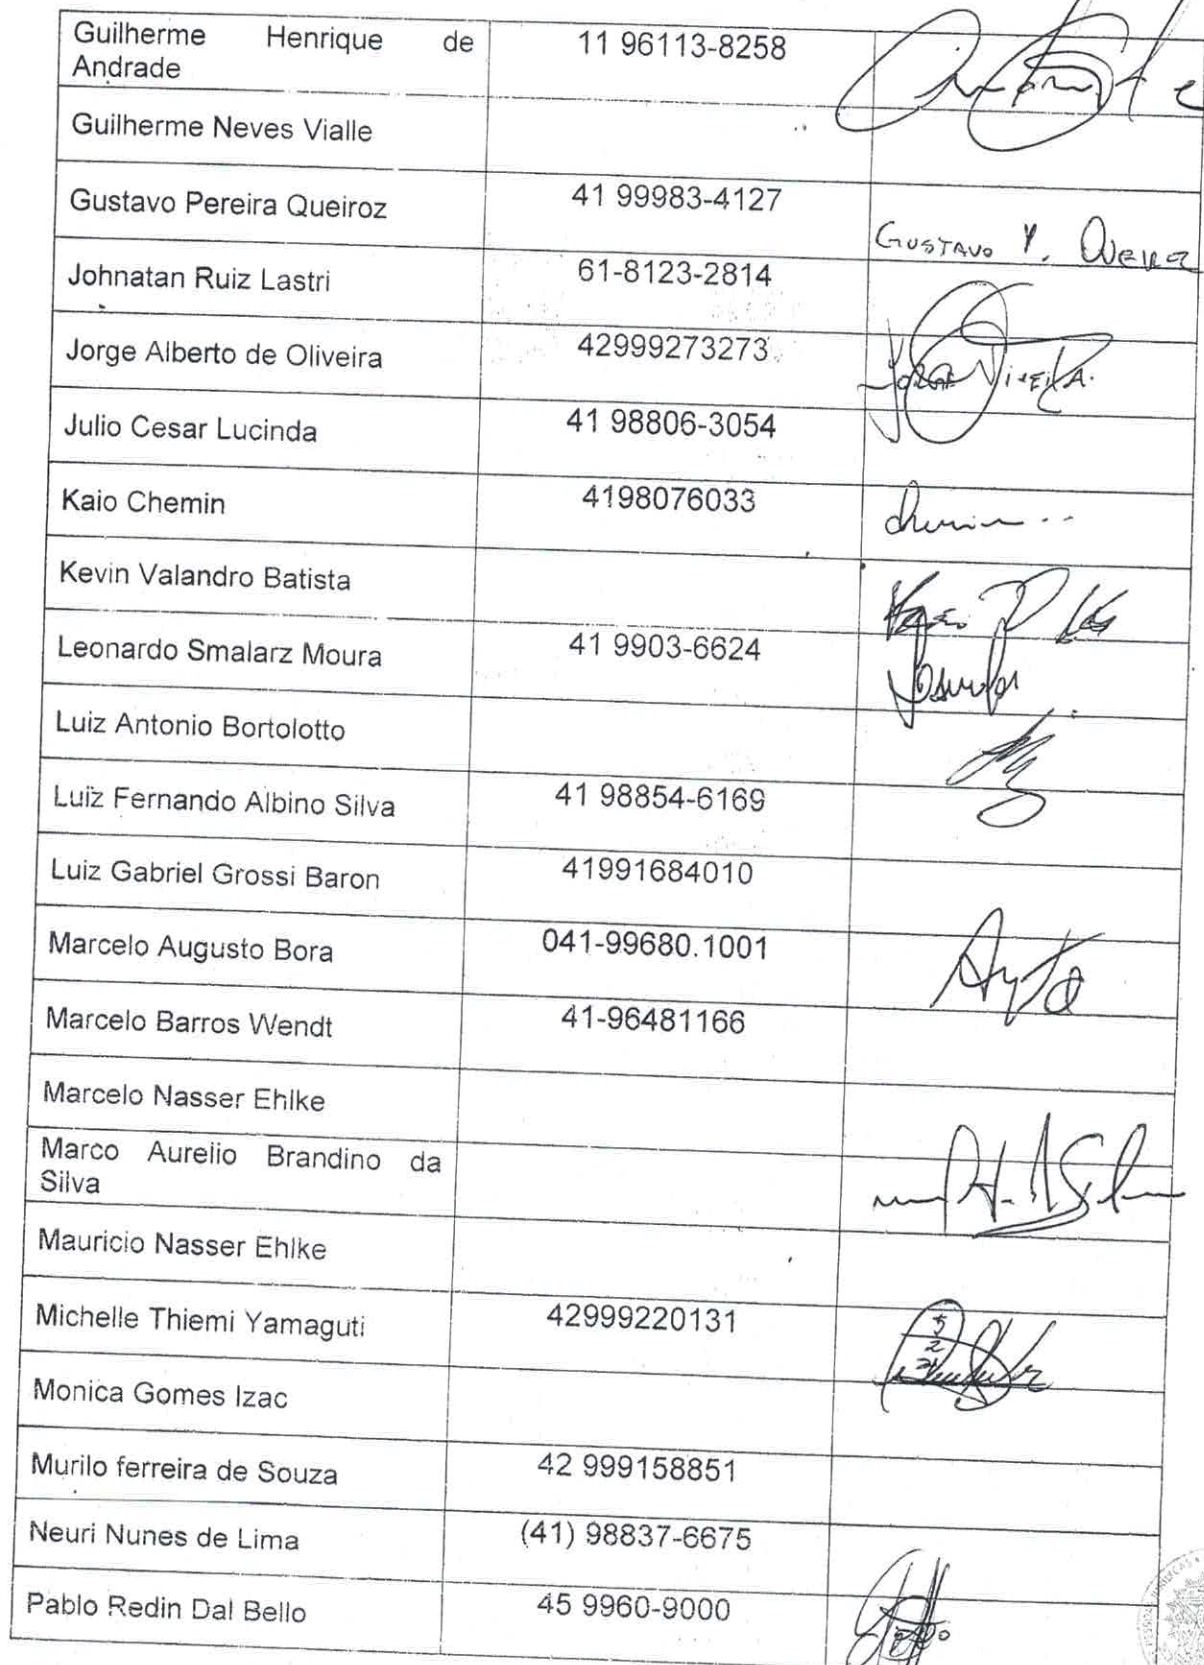 Guilherme Henrique de
Andrade
11 96113-8258
Guilherme Neves Vialle
Gustavo Pereira Queiroz
41 99983-4127
GUSTAVO P. QUEIROZ
Johnatan Ruiz Lastri
61-8123-2814
Jorge Alberto de Oliveira
42999273273
Julio Cesar Lucinda
41 98806-3054
Kaio Chemin
4198076033
Chemin
Kevin Valandro Batista
Leonardo Smalarz Moura
41 9903-6624
Luiz Antonio Bortolotto
Luiz Fernando Albino Silva
41 98854-6169
Luiz Gabriel Grossi Baron
41991684010
Marcelo Augusto Bora
041-99680.1001
Marcelo Barros Wendt
41-96481166
Marcelo Nasser Ehlke
Marco Aurelio Brandino da
Silva
Mauricio Nasser Ehlke
Michelle Thiemi Yamaguti
42999220131
Monica Gomes Izac
Murilo ferreira de Souza
42 999158851
Neuri Nunes de Lima
(41) 98837-6675
Pablo Redin Dal Bello
45 9960-9000